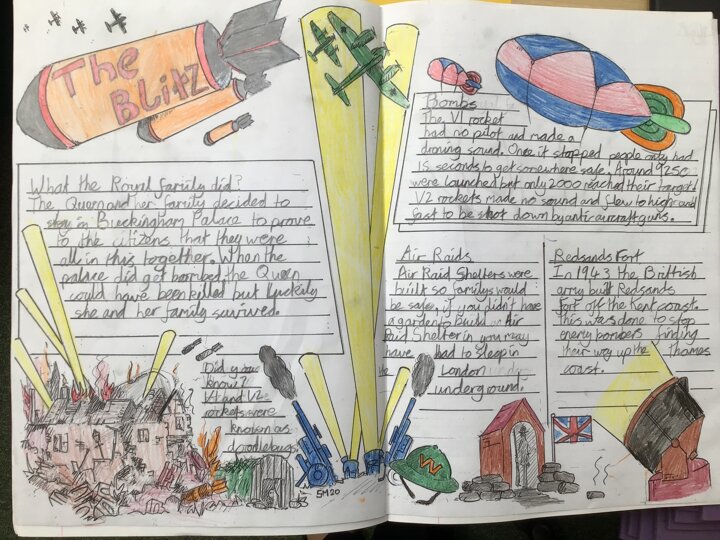 The
Blitz
What the Royal family did?
The Queen and her family decided to
stay in Buckingham Palace to prove
to the citizens that they were
all in this together. When the
palace did get bombed the Queen
could have been killed but luckily
she and her family survived.
Did you
know?
V1 and V2
rockets were
known as
doodlebugs.
SM20
Bombs
The V1 rocket
had no pilot and made a
droning sound. Once it stopped people only had
15 seconds to get somewhere safe. Around 9250
were launched but only 2000 reached their target.
V2 rockets made no sound and flew to high and
fast to be shot down by anti-aircraft guns.
Air Raids
Air Raid Shelters were
built so familys would
be safe, if you didn't have
a garden to build an Air
Raid Shelter in you may
have had to sleep in
London
underground.
W
Redsands Fort
In 1943 the Brittish
army built Redsands
Fort off the Kent coast.
This was done to stop
enemy bombers finding
their way up the Thames
coast.